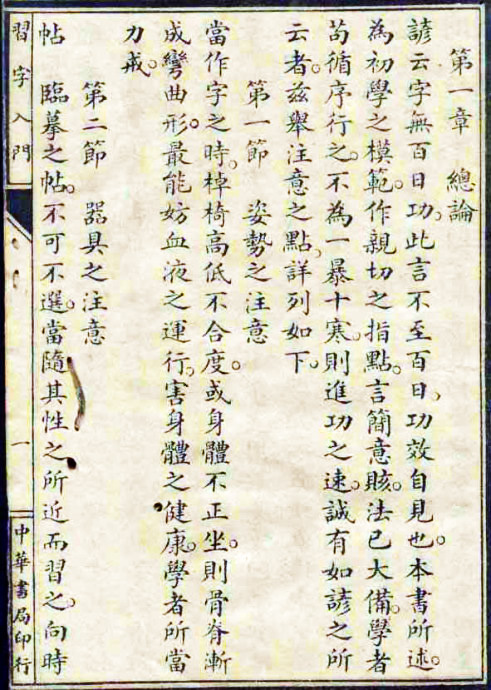 第一章　總論
諺云字無百日功。此言不至百日、功效自見也。本書所述。
為初學之模範。作親切之指點。言簡意賅。法已大備。學者
苟循序行之。不為一暴十寒。則進功之速。誠有如諺之所
云者。茲舉注意之點、詳列如下。
第一節　姿勢之注意
當作字之時、棹椅高低不合度。或身體不正坐。則骨脊漸
成彎曲形。最能妨血液之運行。害身體之健康。學者所當
力戒。
第二節　器具之注意
帖　臨摹之帖。不可不選。當隨其性之所近而習之。向時
習字入門
一
中華書局印行